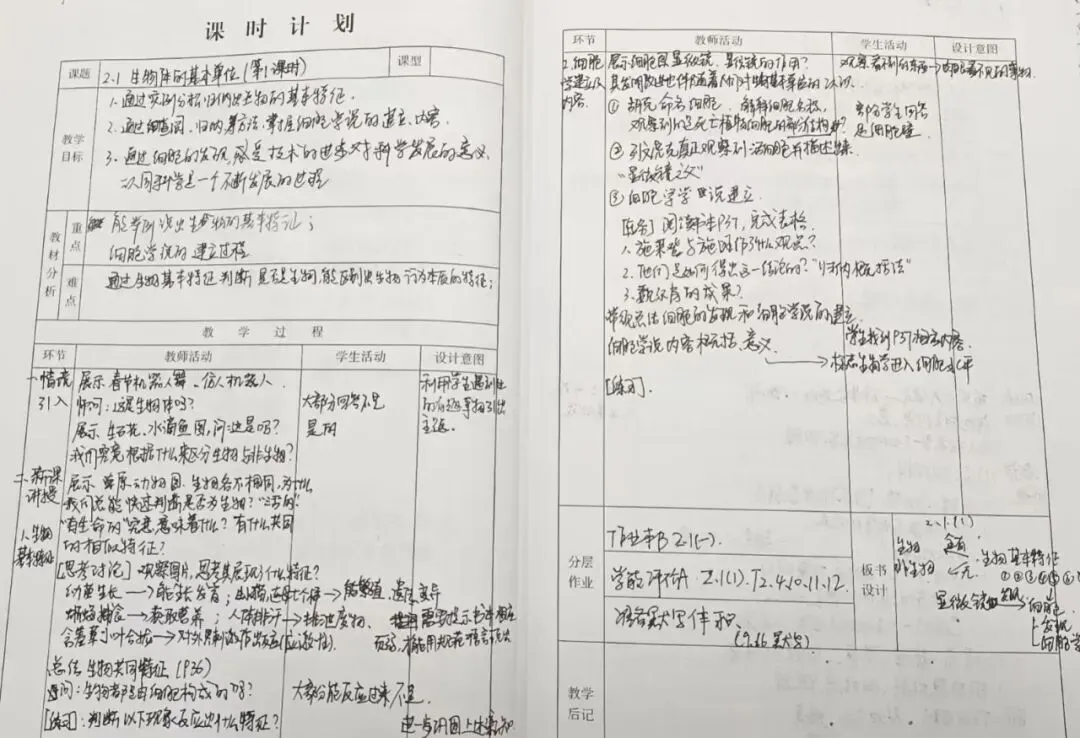 课时计划
课题 2.1 生物体的基本单位(第1课时) 课型
教学目标
1.通过实例分析,归纳出生物的基本特征.
2.通过阅读、归纳等方法,掌握细胞学说的建立、内容.
3.通过细胞的发现,感受技术的进步对科学发展的意义.
认同科学是一个不断发展的过程
教材分析
重点
能举例说出生物的基本特征;
细胞学说的建立过程
难点
通过生物基本特征判断是否是生物,
教学过程
环节 教师活动 学生活动 设计意图
一.情境引入
展示春节机器人舞、仿人机器人.
怀问:这是生物体吗? 大部分回答不是
展示生石花、水滴鱼图,问这是吗? 是的
我们究竟根据什么来区分生物与非生物?
利用学生
主题.
二.新课讲授
展示草原动物图.生物各不相同,为什么
我们总能快速判断是否为生物?"活的"
1.生物基本特征
"有生命的"究竟意味着什么?有什么共同
的相似特征?
[思考讨论]观察图片,思考其展现了什么特征?
幼苗生长→能生长发育;
→获取营养;人体排汗→排出废物.
含羞草小叶合拢→对外界刺激作出反应(应激性).
总结生物共同特征(P36)
追问:生物都是由细胞构成的吗? 大部分能反应过来不是.
[练习]:判断以下现象反应出什么特征? 进一步巩固上述新知
环节 教师活动 学生活动 设计意图
2.细胞学说建立及内容
展示细胞图、显微镜.显微镜的作用?
① 胡克命名细胞. 解释细胞名称.
观察到的是死亡植物细胞的部分结构? 部分学生回答是细胞壁
② 列文虎克真正观察到活细胞并描述出来.
"显微镜之父"
③ 细胞学说建立.
[任务]阅读课本P37,完成表格.
1.施莱登与施旺作了什么观点?
2.他们是如何得出这一结论的?"归纳概括法"
3.魏尔肖的成果?
带领总结细胞的发现和细胞学说的建立.
细胞学说内容概括、意义. 学生找到P37相关内容.
→标志生物学进入细胞水平
[练习].
分层作业
作业本B 2.1(一).
学能评价A. 2.1(1).T2.4.10.11.12.
准备默写体积.
(9.26默写)
板书设计
2.1(1)
生物 有 生物基本特征
非生物 无 ①②③④⑤⑥
显微镜 → 细胞
发现
细胞学
教学后记